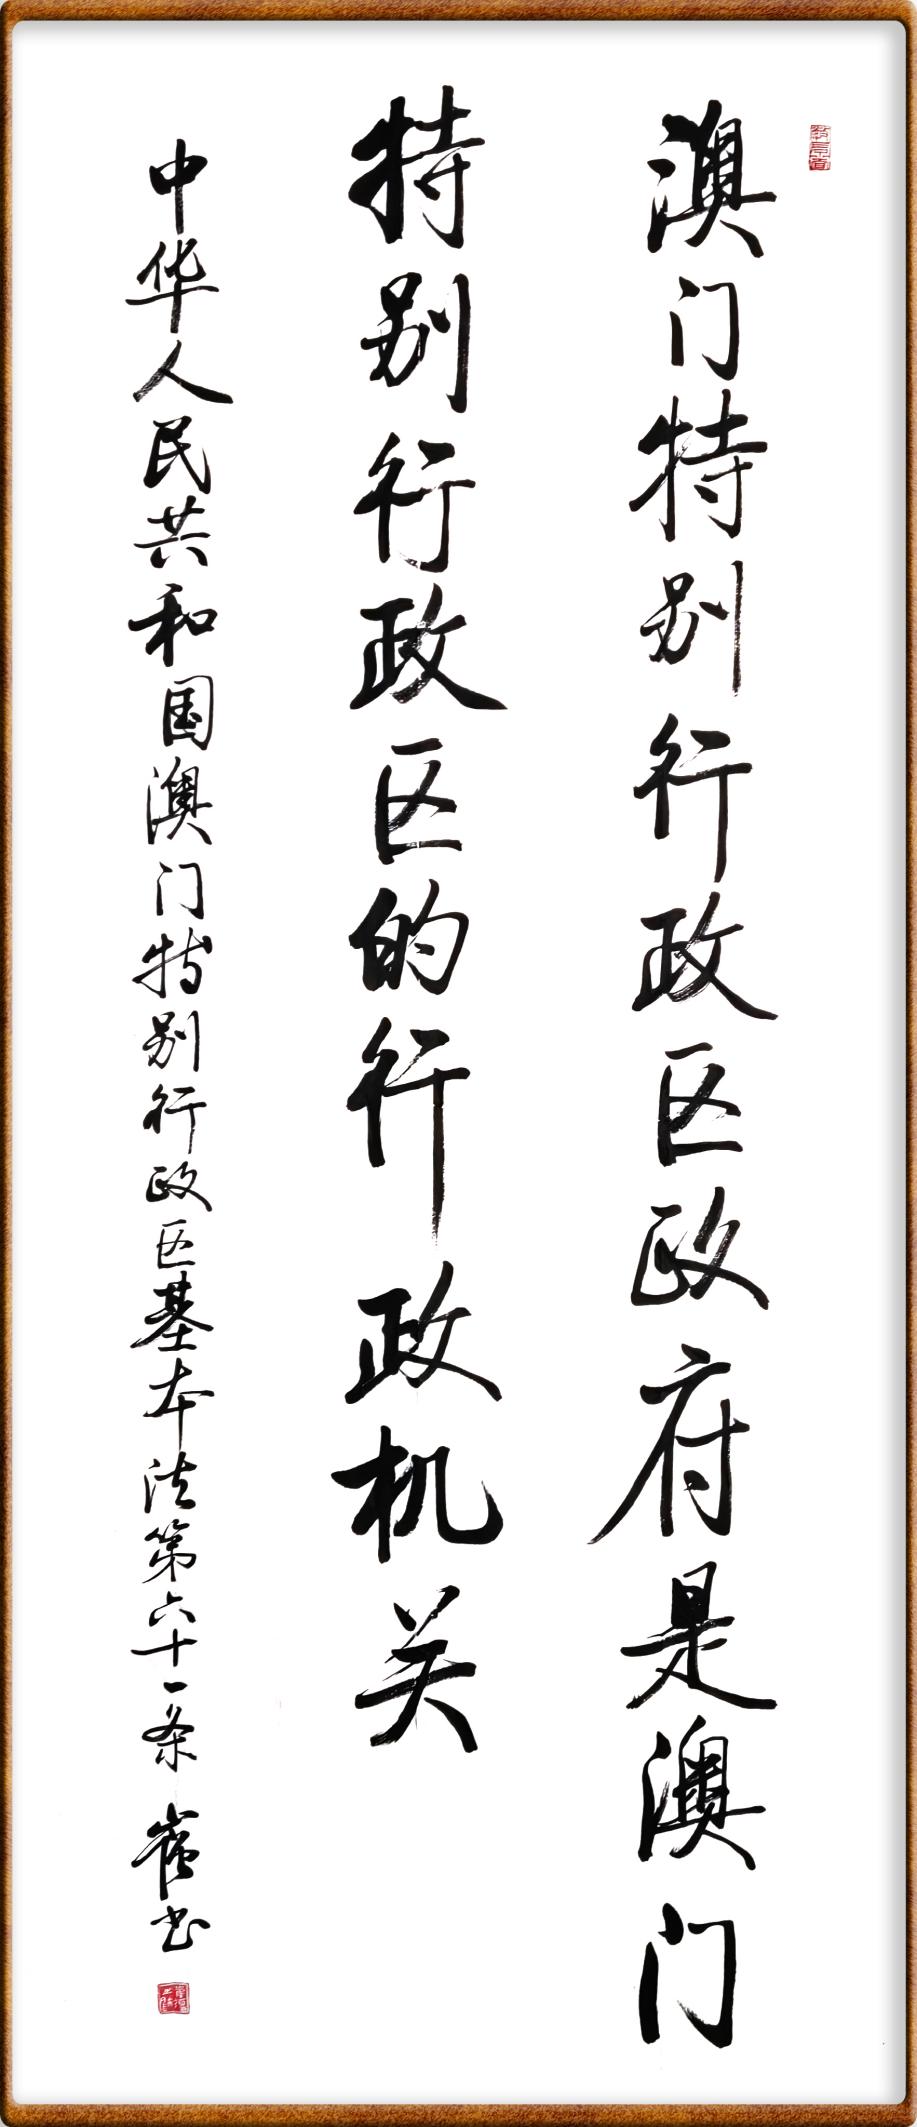 澳门特别行政区政府是澳门
特别行政区的行政机关
中华人民共和国澳门特别行政区基本法第六十一条 崔书